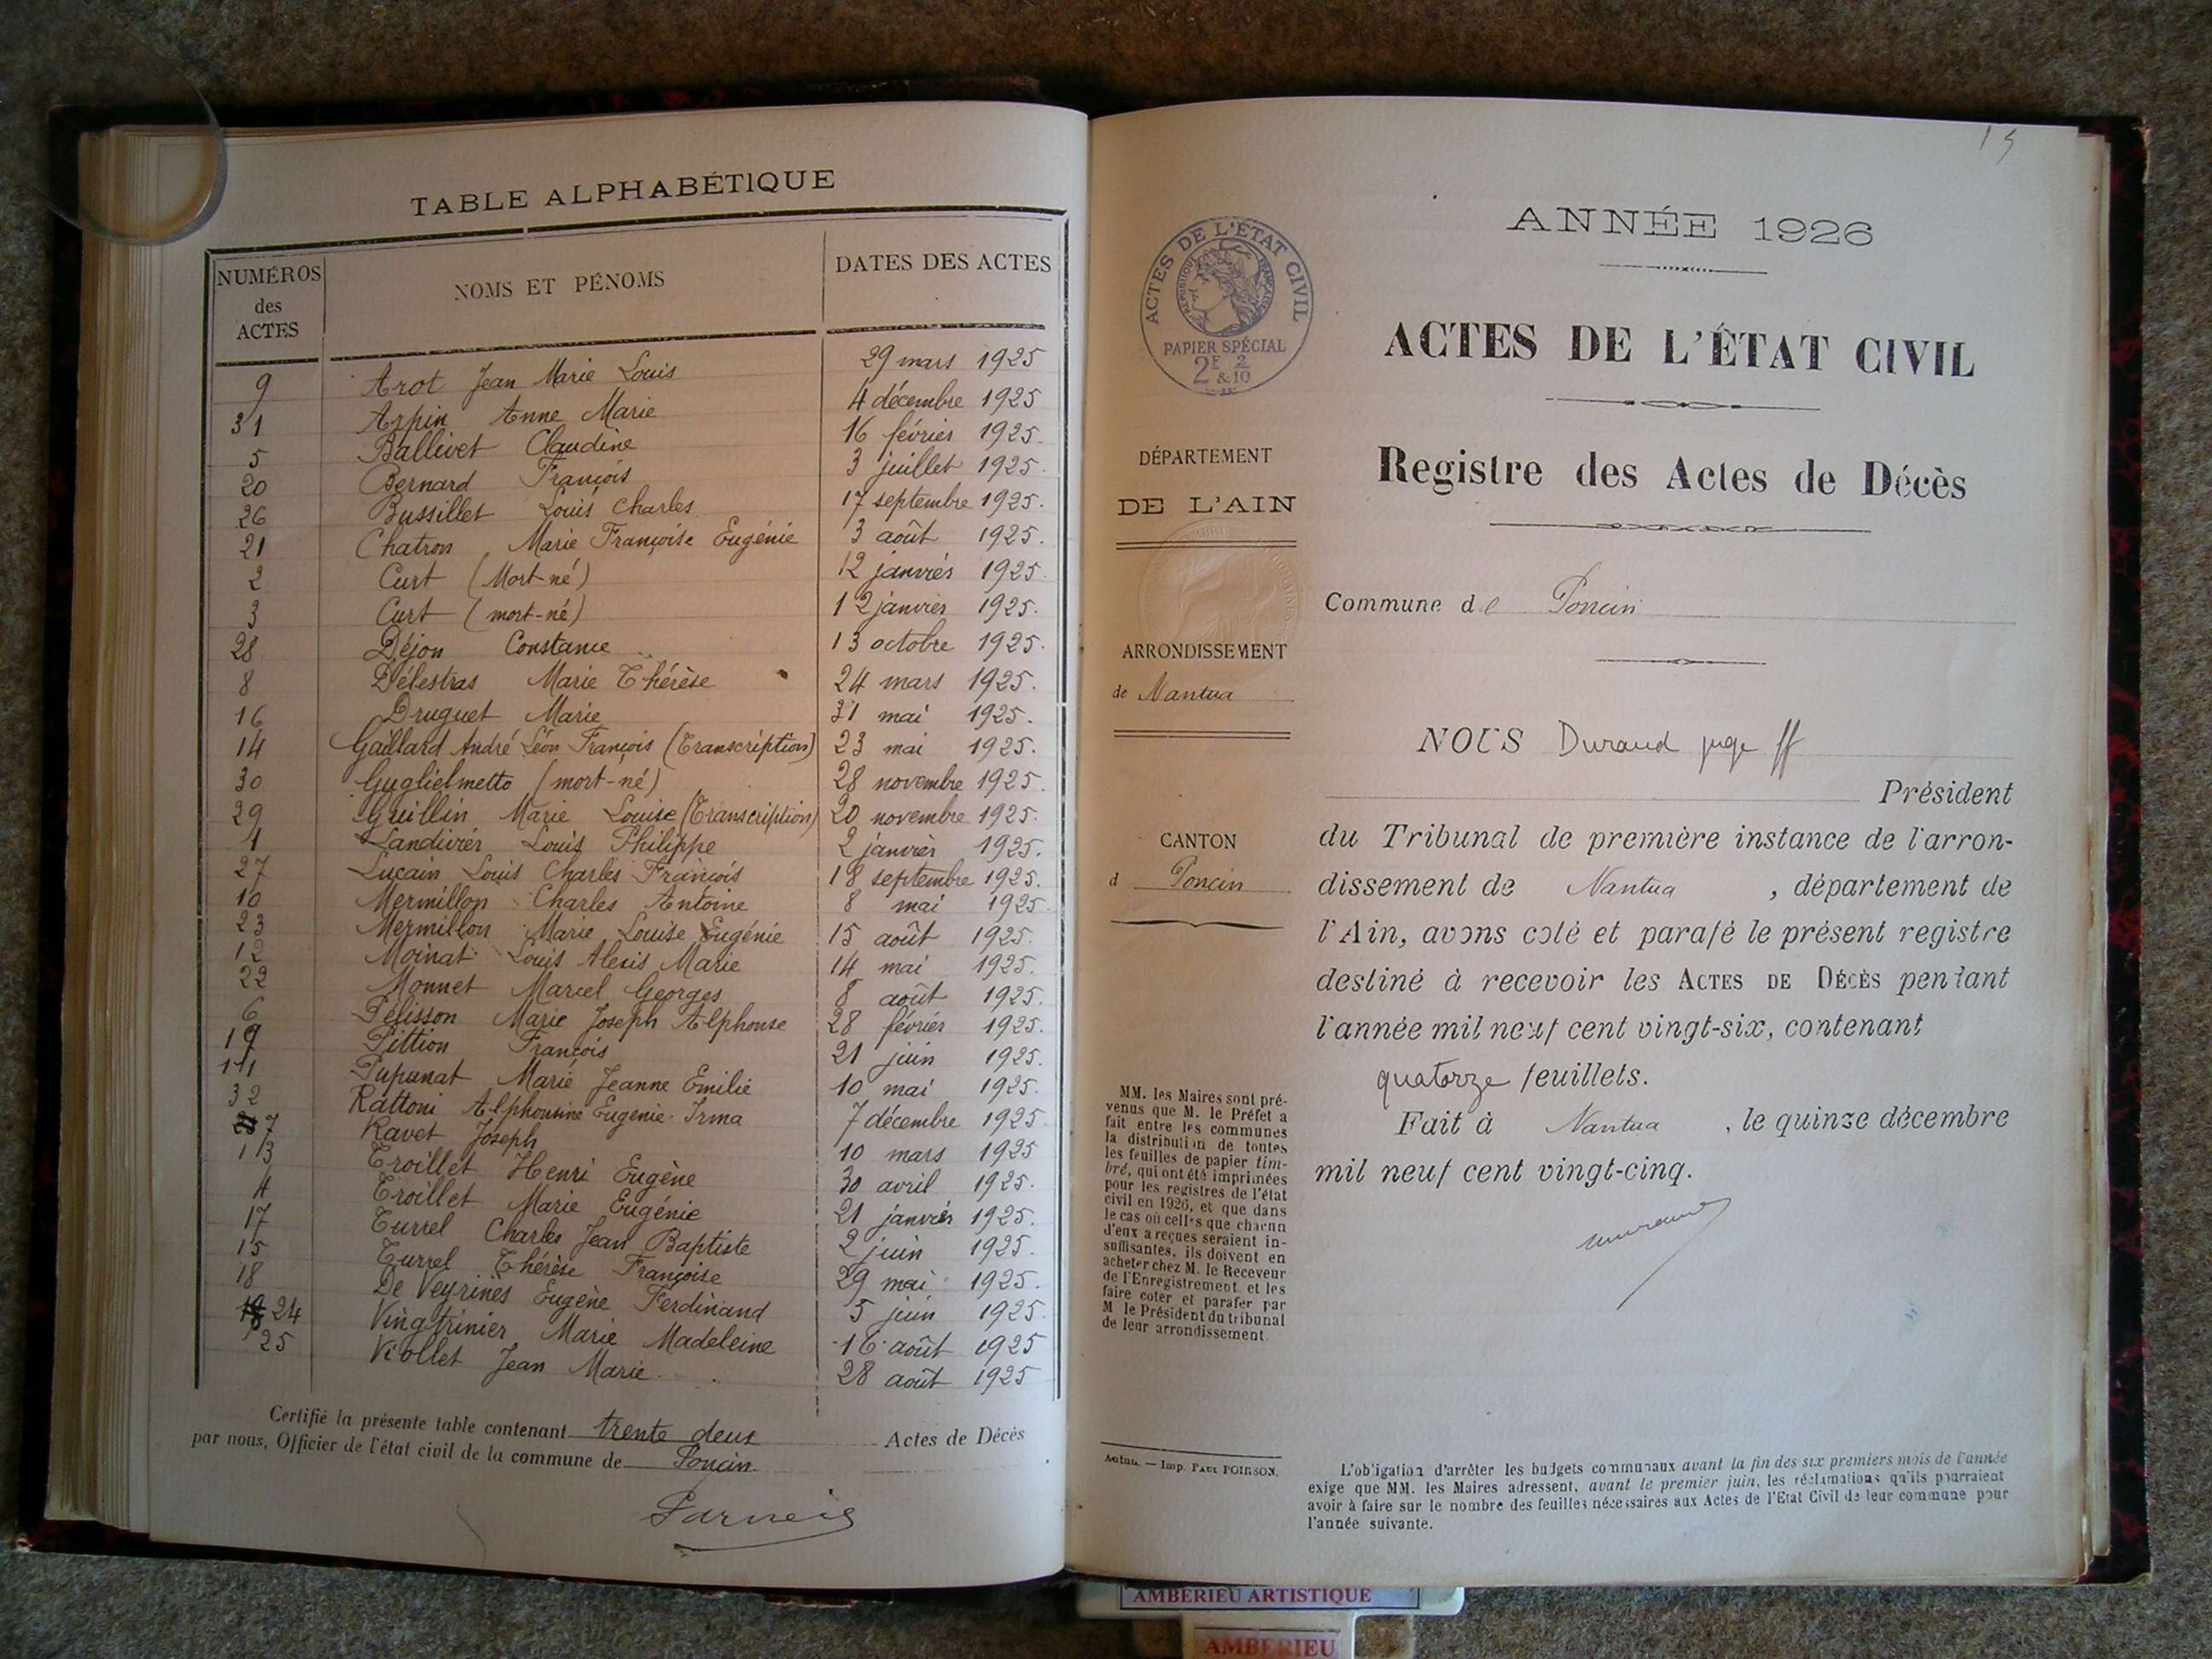 TABLE ALPHABÉTIQUE
NUMÉROS des ACTES
NOMS ET PÉNOMS
DATES DES ACTES
9 Arot Jean Marie Louis 29 mars 1925
31 Arpin Anne Marie 4 décembre 1925
5 Ballivet Claudine 16 février 1925.
20 Bernard François 3 juillet 1925.
26 Bussillet Louis Charles 17 septembre 1925.
21 Chatron Marie Françoise Eugénie 3 août 1925.
2 Curt (Mort-né) 12 janvier 1925.
3 Curt (mort-né) 12 janvier 1925.
28 Déjon Constance 13 octobre 1925.
8 Délestras Marie Thérèse 24 mars 1925.
16 Druguet Marie 31 mai 1925.
14 Gaillard André Léon François (Transcription) 23 mai 1925.
30 Guglielmetto (mort-né) 28 novembre 1925.
29 Guillin Marie Louise (Transcription) 20 novembre 1925.
1 Landivier Louis Philippe 2 janvier 1925.
27 Luçain Louis Charles François 18 septembre 1925.
10 Mermillon Charles Antoine 8 mai 1925
23 Mermillon Marie Louise Eugénie 15 août 1925.
12 Moinat Louis Alexis Marie 14 mai 1925.
22 Monnet Marcel Georges 8 août 1925.
6 Pélisson Marie Joseph Alphonse 28 février 1925.
19 Pittion François 21 juin 1925.
11 Pupunat Marie Jeanne Emilie 10 mai 1925.
32 Rattoni Alphonsine Eugenie Irma 7 décembre 1925
7 Ravet Joseph 10 mars 1925
13 Troillet Henri Eugène 30 avril 1925.
4 Troillet Marie Eugénie 21 janvier 1925.
17 Turrel Charles Jean Baptiste 2 juin 1925.
15 Turrel Thérèse Françoise 29 mai 1925.
18 De Veyrines Eugène Ferdinand 5 juin 1925.
24 Vingtrinier Marie Madeleine 16 août 1925
25 Viollet Jean Marie 28 août 1925
Certifié la présente table contenant trente deux Actes de Décès
par nous, Officier de l'état civil de la commune de Poncin.
ANNÉE 1926
ACTES DE L'ÉTAT CIVIL
RÉPUBLIQUE FRANÇAISE
PAPIER SPÉCIAL
2F & 2/10
ACTES DE L'ÉTAT CIVIL
Registre des Actes de Décès
DÉPARTEMENT
DE L'AIN
Commune de Poncin
ARRONDISSEMENT
de Nantua
CANTON
d Poncin
NOUS Durand juge ff
Président
du Tribunal de première instance de l'arron-
dissement de Nantua , département de
l'Ain, avons coté et parafé le présent registre
destiné à recevoir les ACTES DE DÉCÈS pendant
l'année mil neuf cent vingt-six, contenant
quatorze feuillets.
Fait à Nantua , le quinze décembre
mil neuf cent vingt-cinq.
MM. les Maires sont pré-
venus que M. le Préfet a
fait entre les communes
la distribution de toutes
les feuilles de papier tim-
bré, qui ont été imprimées
pour les registres de l'état
civil en 1926, et que dans
le cas où celles que chacun
d'eux a reçues seraient in-
suffisantes, ils doivent en
acheter chez M. le Receveur
de l'Enregistrement et les
faire coter et parafer par
M le Président du tribunal
de leur arrondissement.
Autun. — Imp. PAUL POIRSON.
L'obligation d'arrêter les budgets communaux avant la fin des six premiers mois de l'année
exige que MM. les Maires adressent, avant le premier juin, les réclamations qu'ils pourraient
avoir à faire sur le nombre des feuilles nécessaires aux Actes de l'Etat Civil de leur commune pour
l'année suivante.
AMBERIEU ARTISTIQUE
AMBERIEU